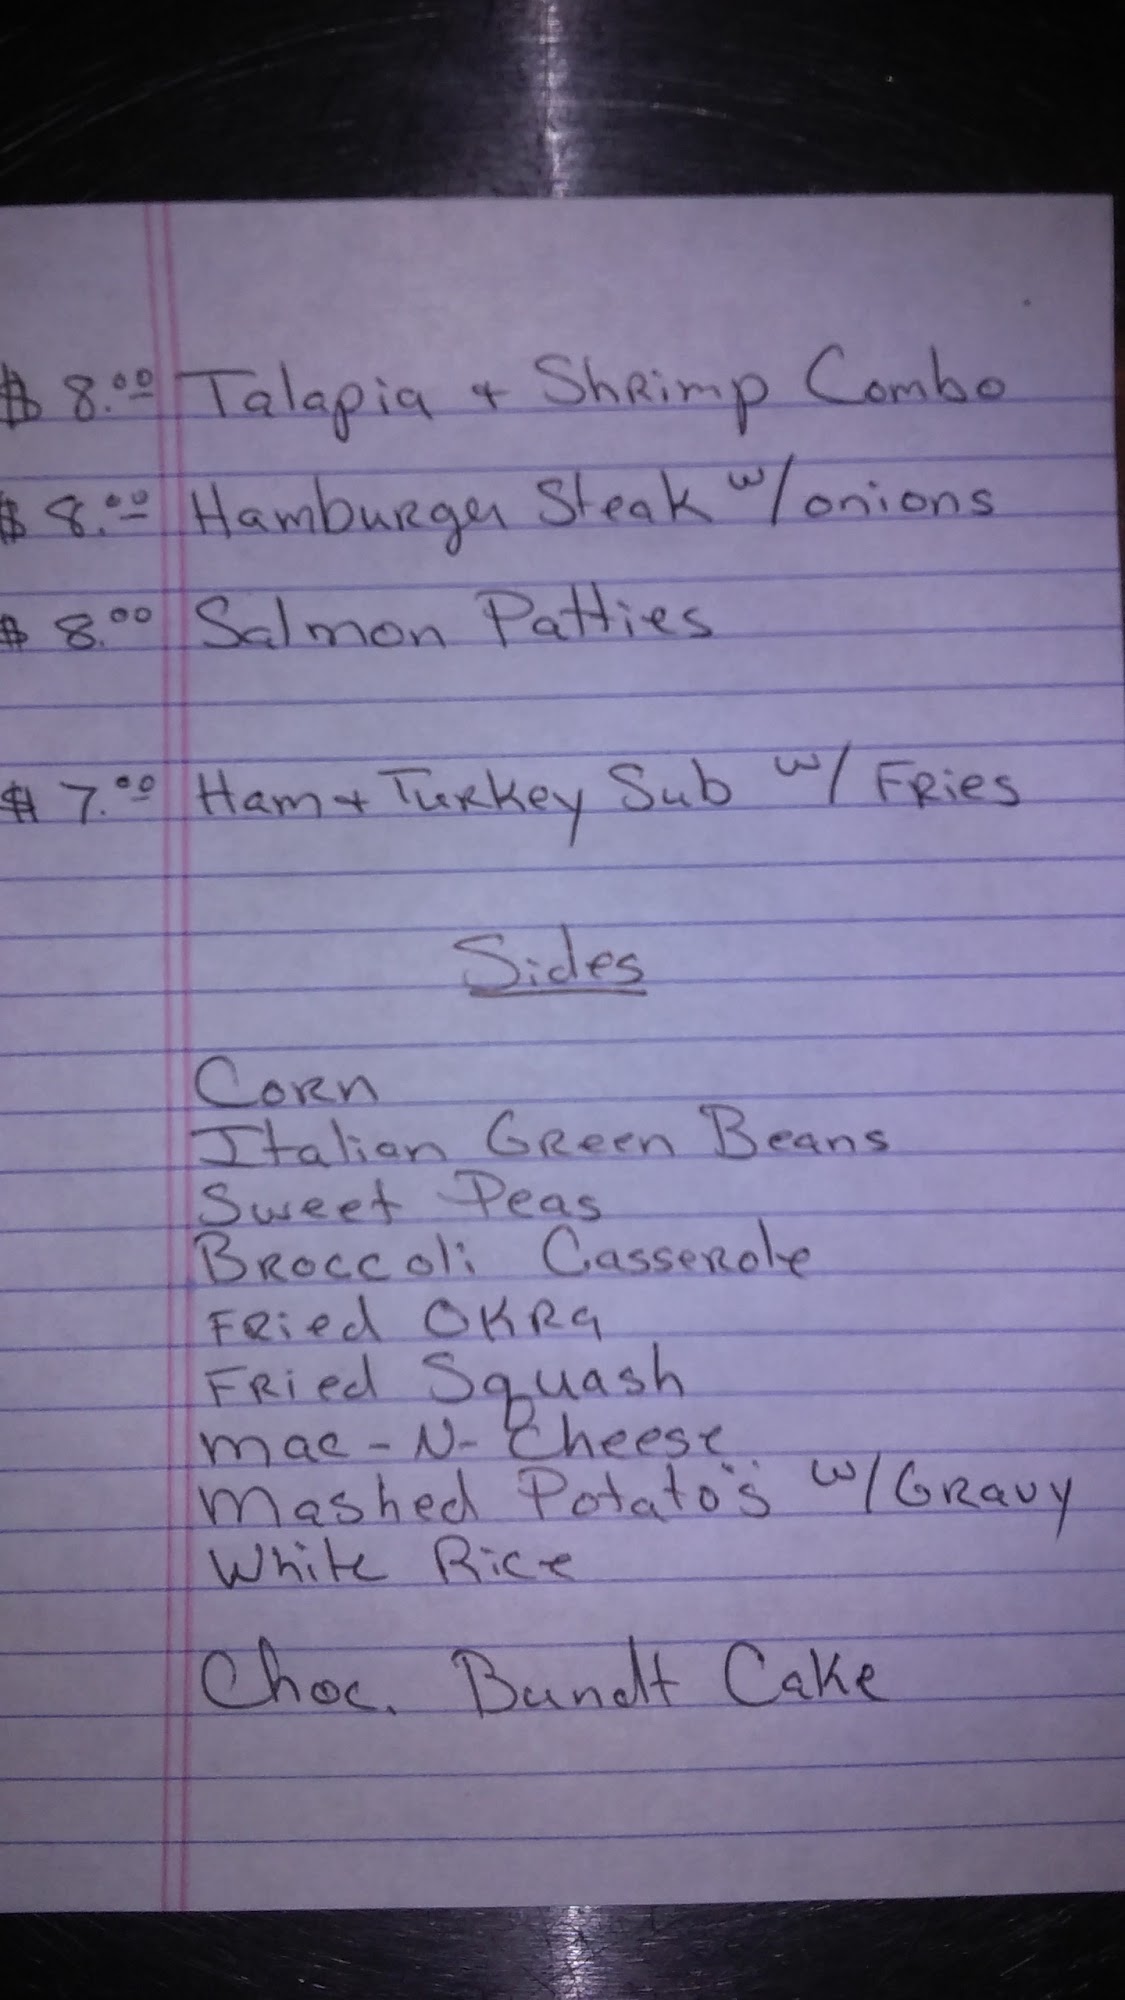 $ 8.00 Talapia + Shrimp Combo
$ 8.00 Hamburger Steak w/onions
$ 8.00 Salmon Patties
$ 7.00 Ham + Turkey Sub w/ Fries
Sides
Corn
Italian Green Beans
Sweet Peas
Broccoli Casserole
Fried Okra
Fried Squash
Mac-N-Cheese
Mashed Potato's w/Gravy
White Rice
Choc. Bundt Cake